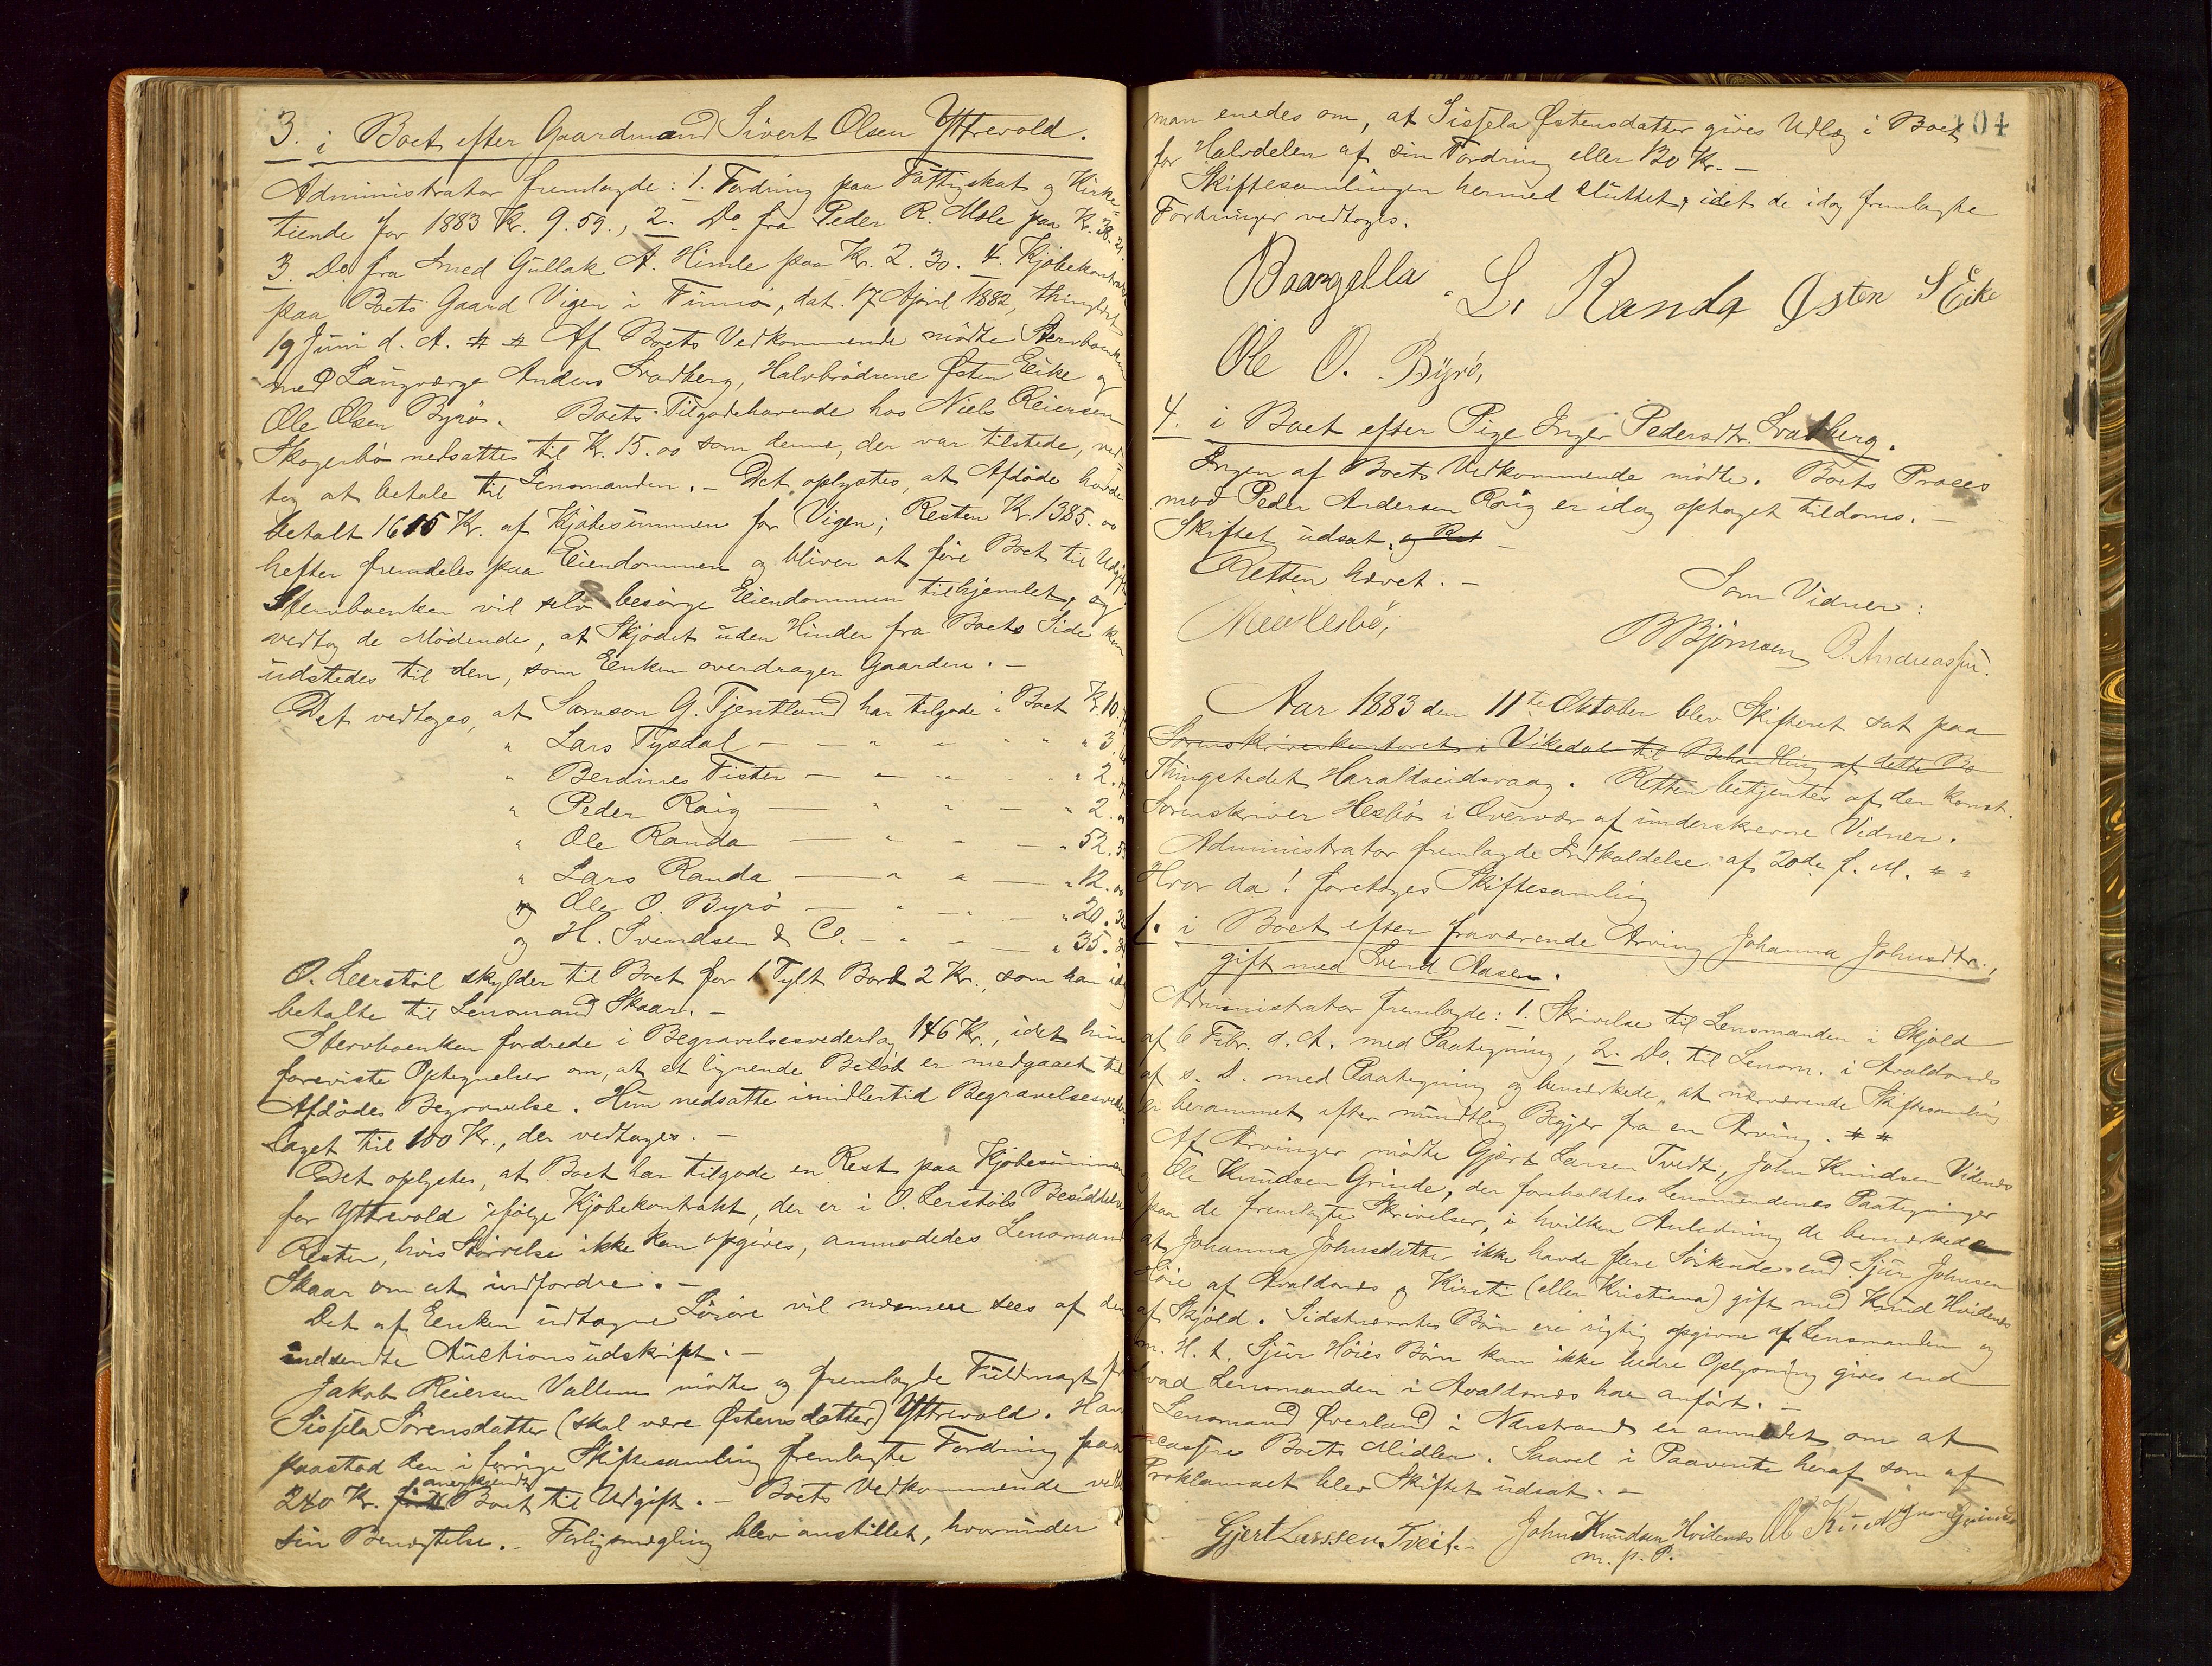 3. i Boet efter Gaardmand Sivert Olsen Yttrevold.
Administrator fremlagde: 1. Fordring paa Fattigskat og Kirke-
tiende for 1883 Kr. 9.59., 2. Do. fra Peder R. Mæle paa Kr. 38.21.
3. Do. fra Smed Gullak A. Himle paa Kr. 2.30. 4. Kjøbekontrakt
paa Boets Gaard Vigen i Finnø, dat. 17 April 1882, thinglæst
19 Juni d. A. # # Af Boets Vedkommende mødte Stervboenken
med Laugværge Anders Svadberg, Halvbrødrene Østen Eike og
Ole Olsen Byrø. Boets Tilgodehavende hos Niels Reiersen
Skogerbø nedsattes til Kr. 15.00 som denne, der var tilstede, ved-
tog at betale til Lensmanden. - Det oplystes, at Afdøde havde
betalt 1615 Kr. af Kjøbesummen for Vigen; Resten Kr. 1385.00
hefter fremdeles paa Eiendommen og bliver at føre Boet til Udgift.
Stervboenken vil selv besørge Eiendommen tilhjemlet, og
vedtog de Mødende, at Skjødet uden Hinder fra Boets Side kan
udstedes til den, som Enken overdrager Gaarden. -
Det vedtoges, at Samson G. Tjentland har tilgode i Boet Kr. 10.
" Lars Tysdal - - " - " " " 3.
" Berdines Fister - - " - " 2.
" Peder Røig - " " - " 2.
" Ole Randa - " - - " 52.
" Lars Randa - " " - " 12.00
" Ole O. Byrø - " - - " 20.
og H. Svendsen & Co. - " - - " 35.
O. Leerstøl skylder til Boet for 1 Tylt Bord 2 Kr., som han idag
betalte til Lensmand Skaar. -
Stervboenken fordrede i Begravelsesvederlag 146 Kr., idet hun
foreviste Optegnelser om, at et lignende Beløb er medgaaet til
Afdødes Begravelse. Hun nedsatte imidlertid Begravelsesveder-
laget til 100 Kr., der vedtoges. -
Det oplystes, at Boet har tilgode en Rest paa Kjøbesummen
for Yttrevold ifølge Kjøbekontrakt, der er i O. Lerstøls Besiddelse
Resten, hvis Størrelse ikke kan opgives, anmodedes Lensmand
Skaar om at indfordre. -
Det af Enken udtagne Løsøre vil nærmere sees af den
indsendte Auctionsudskrift. -
Jakob Reiersen Vallem mødte og fremlagde Fuldmagt fra
Sissela Sørensdatter (skal være Østensdatter) Yttrevold. Han
paastod den i forrige Skiftesamling fremlagte Fordring paa
240 Kr. anerkjendt Boet til Udgift. - Boets Vedkommende vedtog
sin Benægtelse. - Forligsmægling blev anstillet, hvorunder
104
man enedes om, at Sissela Østensdatter gives Udlæg i Boet
for Halvdelen af sin Fordring eller 120 Kr. -
Skiftesamlingen hermed sluttet, idet de idag fremlagte
Fordringer vedtoges.
L. Randa Østen S Eike
Ole O. Byrø,
4. i Boet efter Pige Inger Pedersdtr. Svadberg.
Ingen af Boets Vedkommende mødte. Boets Proces
mod Peder Andersen Røig er idag optaget tildoms. -
Skiftet udsat, og Ret
Retten hævet. -
Som Vidner:
B Bjørnsen O. Andreassen.
Aar 1883 den 11te Oktober blev Skifteret sat paa
Sorenskriverkontoret i Vikedal til Behandling af dette Bo
Thingstedet Haraldseidsvaag. Retten betjentes af den konst.
Sorenskriver Hesbø i Overvær af underskrevne Vidner.
Administrator fremlagde Indkaldelse af 20de f. M. # "
Hvor da! foretoges Skiftesamling
1. i Boet efter fraværende Arving Johanna Johnsdtr.,
gift med Svend Aasen.
Administrator fremlagde: 1. Skrivelse til Lensmanden i Skjold
af 6 Febr. d. A. med Paategning, 2. Do. til Lensm. i Avaldsnes
af s. D. med Paategning og bemærkede, at nærværende Skiftesamling
er berammet efter mundtlig Begjær fra en Arving. # #
Af Arvinger mødte Gjært Larsen Tvedt, John Knudsen Videnes
og Ole Knudsen Grinde, der foreholdtes Lensmendenes Paategninger
paa de fremlagte Skrivelser, i hvilken Anledning de bemærkede
at Johanna Johnsdatter ikke havde flere Søskende end Sjur Johnsen
Høie af Avaldsnes og Kirsti (eller Kristiana) gift med Knud Hvidenes
af Skjold. Sidstnævntes Børn ere rigtig opgivne af Lensmanden og
m. H. t. Sjur Høies Børn kan ikke bedre Oplysning gives end
hvad Lensmanden i Avaldsnes har anført. -
Lensmand Øverland i Nærstrand er anmodet om at
incassere Boets Midler. Saavel i Paavente heraf som af
Proklamaet blev Skiftet udsat. -
Gjert Larssen Tveit. - John Knudsen Hvidenes Ole Knudsen Grinde
m. p. P.